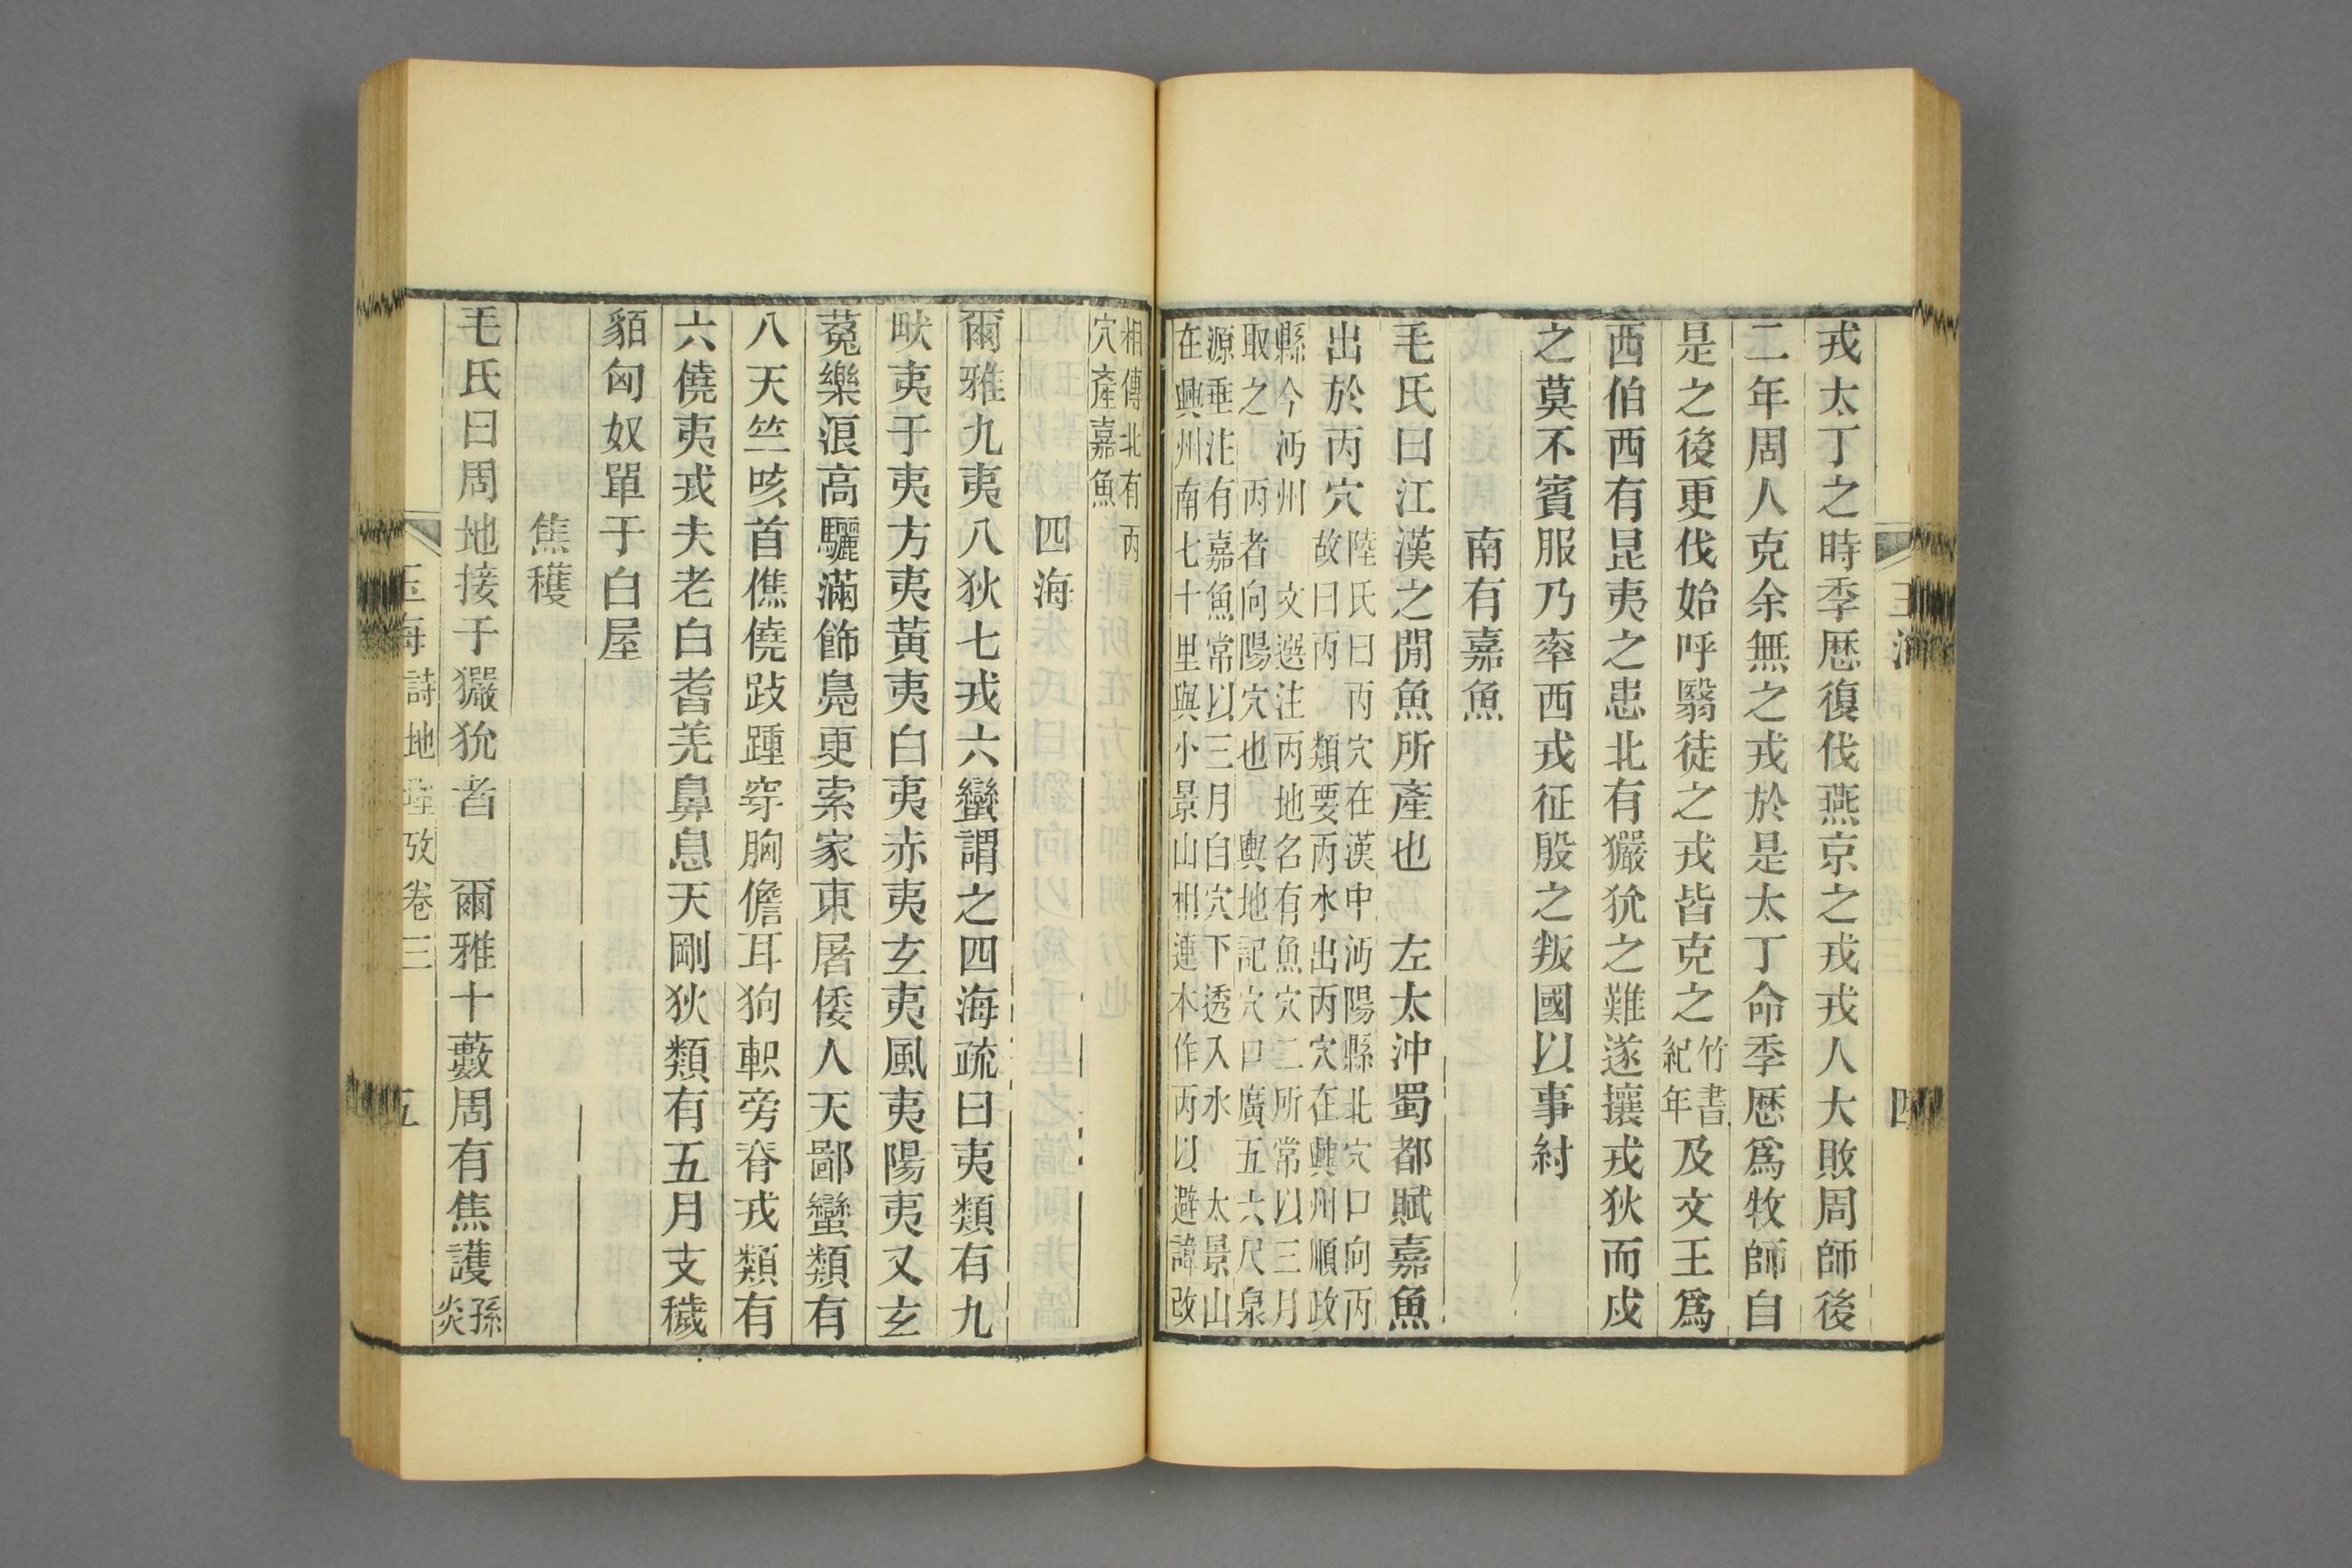 戎太丁之時季歷復伐燕京之戎戎人大敗周師後
二年周人克余無之戎於是太丁命季歷爲牧師自
是之後更伐始呼翳徒之戎皆克之竹書紀年及文王爲
西伯西有昆夷之患北有玁狁之難遂攘戎狄而戍
之莫不賓服乃率西戎征殷之叛國以事紂
南有嘉魚
毛氏曰江漢之閒魚所產也 左太沖蜀都賦嘉魚
出於丙穴
陸氏曰丙穴在漢中沔陽縣北穴口向丙
故曰丙 類要丙水出丙穴在興州順政
縣今沔州 文選注丙地名有魚穴二所常以三月
取之丙者向陽穴也 輿地記穴口廣五六尺泉
源垂注有嘉魚常以三月自穴下透入水 太景山
在興州南七十里與小景山相連本作丙以避諱改
相傳北有丙
穴產嘉魚
四海
爾雅九夷八狄七戎六蠻謂之四海疏曰夷類有九
畎夷于夷方夷黃夷白夷赤夷玄夷風夷陽夷又玄
菟樂浪高驪滿飾鳧更索家東屠倭人天鄙蠻類有
八天竺咳首僬僥跂踵穿胸儋耳狗軹旁脊戎類有
六僥夷戎夫老白耆羌鼻息天剛狄類有五月支穢
貊匈奴單于白屋
焦穫
毛氏曰周地接于玁狁者 爾雅十藪周有焦護孫炎
玉海詩地理攷卷三 五